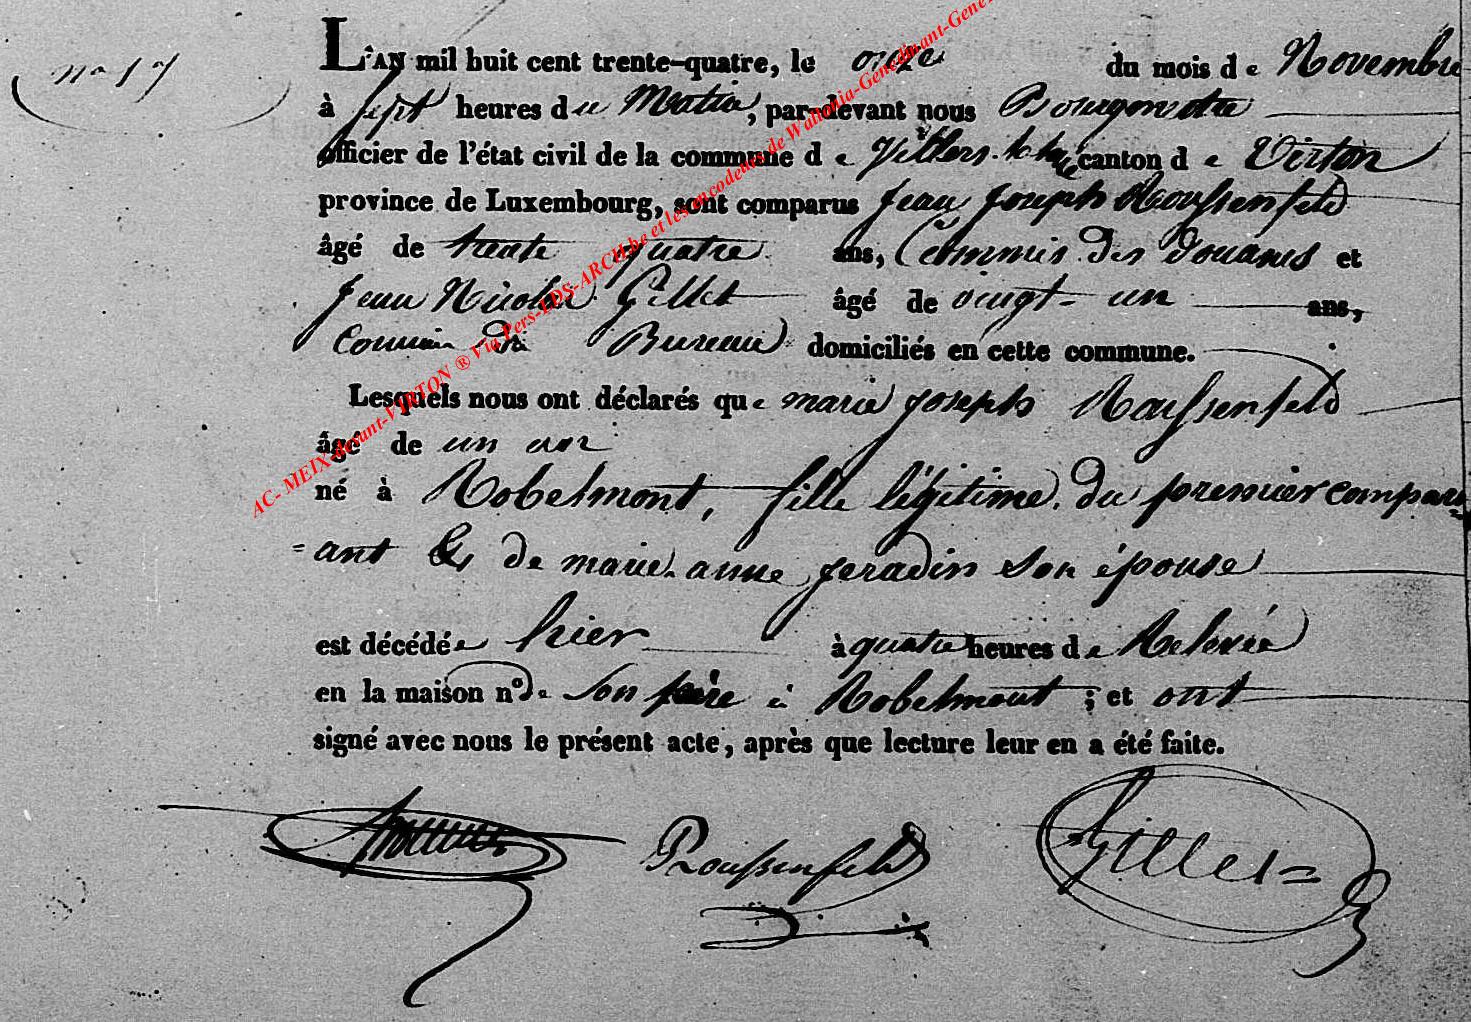 nº 17
L'AN mil huit cent trente-quatre, le onze du mois de Novembre
à sept heures du Matin, par-devant nous Bourgmestre
officier de l'état civil de la commune de Villers-la-loue canton de Virton
province de Luxembourg, sont comparus Jean Joseph Roussenfeld
âgé de trente quatre ans, Commis des Douanes et
Jean Nicolas Gillet âgé de vingt-un ans,
Commis de Bureau domiciliés en cette commune.
Lesquels nous ont déclarés que marie joseph Roussenfeld
âgé de un an
né à Robelmont, fille légitime du premier compar
=ant & de marie anne feradin son épouse
est décédée hier à quatre heures de Relevée
en la maison nº de son père à Robelmont ; et ont
signé avec nous le présent acte, après que lecture leur en a été faite.
Roussenfeld Gillet
AC- MEIX-devant-VIRTON ® Via Pers-LDS-ARCH.be et les encodeurs de Wallonia-Genedinant-Gene